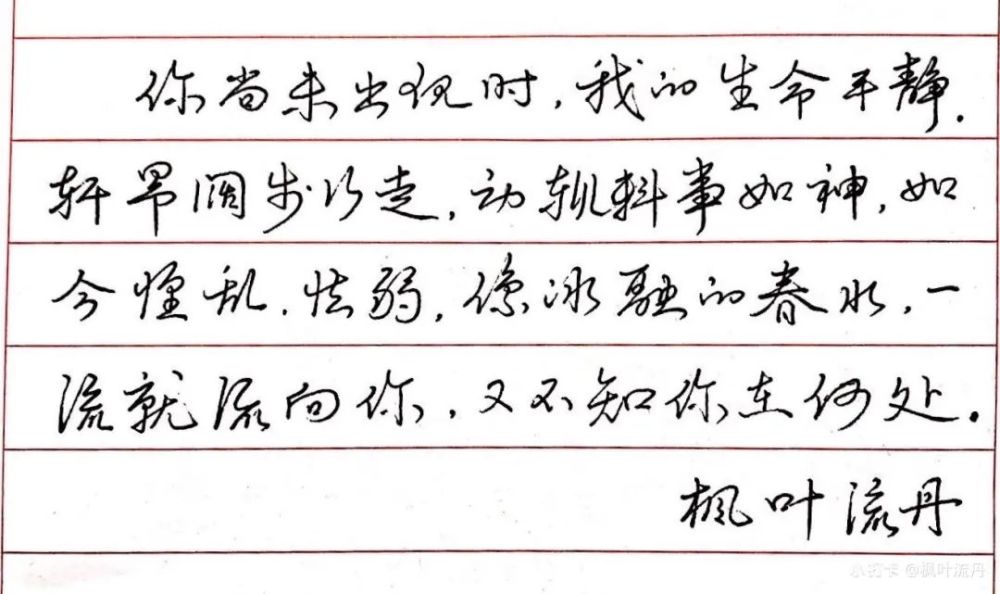 你尚未出现时，我的生命平静．
轩昂阔步行走，动辄料事如神，如
今惶乱．怯弱，像冰融的春水，一
流就流向你，又不知你在何处。
枫叶流丹
小打卡 @枫叶流丹